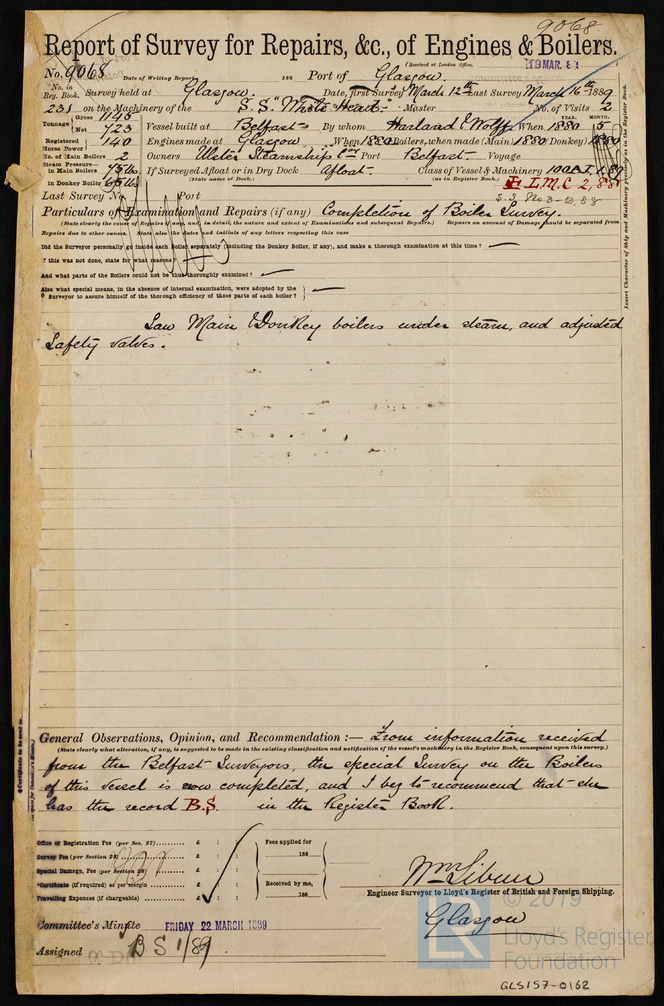 9068
Report of Survey for Repairs, &c., of Engines & Boilers.
(Received at London Office, 19 MAR. 8
No. 9068 Date of Writing Report 188 Port of Glasgow.
No. in Reg. Book. Survey held at Glasgow. Date, first Survey March 12th Last Survey March 16th 1889
231 on the Machinery of the S.S. "White Head" Master No. of Visits 2
Tonnage Gross 1145 Net 723 Vessel built at Belfast By whom Harland & Wolff When 1880 YEAR. MONTH. 5
Registered Horse Power 140 Engines made at Glasgow When 1880 Boilers, when made (Main) 1880 (Donkey) 1880
No. of Main Boilers 2 Owners Ulster Steamship Co Port Belfast Voyage
Steam Pressure in Main Boilers 75 lbs If Surveyed Afloat or in Dry Dock Afloat Class of Vessel & Machinery 100A1
in Donkey Boiler 65 lbs (State name of Dock.) (as in Register Book.) L.M.C 2,88
S.S. No 2-2,88
Last Survey No. Port
Particulars of Examination and Repairs (if any) Completion of Boiler Survey.
(State clearly the cause of Repairs, if any, and, in detail, the nature and extent of Examinations and subsequent Repairs.) Repairs on account of Damage should be separated from
Repairs due to other causes. State also the dates and initials of any letters respecting this case
Did the Surveyor personally go inside each Boiler separately (including the Donkey Boiler, if any), and make a thorough examination at this time?
If this was not done, state for what reasons
And what parts of the Boilers could not be thus thoroughly examined?
Also what special means, in the absence of internal examination, were adopted by the
Surveyor to assure himself of the thorough efficiency of those parts of each boiler?
Insert Character of Ship and Machinery precisely as in the Register Book.
Saw Main & Donkey boilers under steam, and adjusted
Safety valves.
General Observations, Opinion, and Recommendation :— From information received
(State clearly what alteration, if any, is suggested to be made in the existing classification and notification of the vessel's machinery in the Register Book, consequent upon this survey.)
from the Belfast Surveyors, the special Survey on the Boilers
of this Vessel is now completed, and I beg to recommend that she
has the record B.S. in the Register Book.
Certificate to be sent to
Office or Registration Fee (per Sec. 27) £ : :
Survey Fee (per Section 28) £ : :
Special Damage, Fee (per Section 28) £ : :
*Certificate (if required) as per margin £ : :
Travelling Expenses (if chargeable) £ : :
Fees applied for 188
Received by me, 188
Engineer Surveyor to Lloyd's Register of British and Foreign Shipping.
Glasgow
Committee's Minute FRIDAY 22 MARCH 1889
Assigned B S 1/89
© 2019
Lloyd's Register
Foundation
GLS157-0162